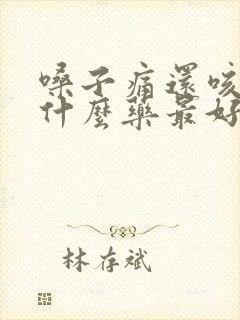 嗓子痛還咳
什麼藥最好
林存斌